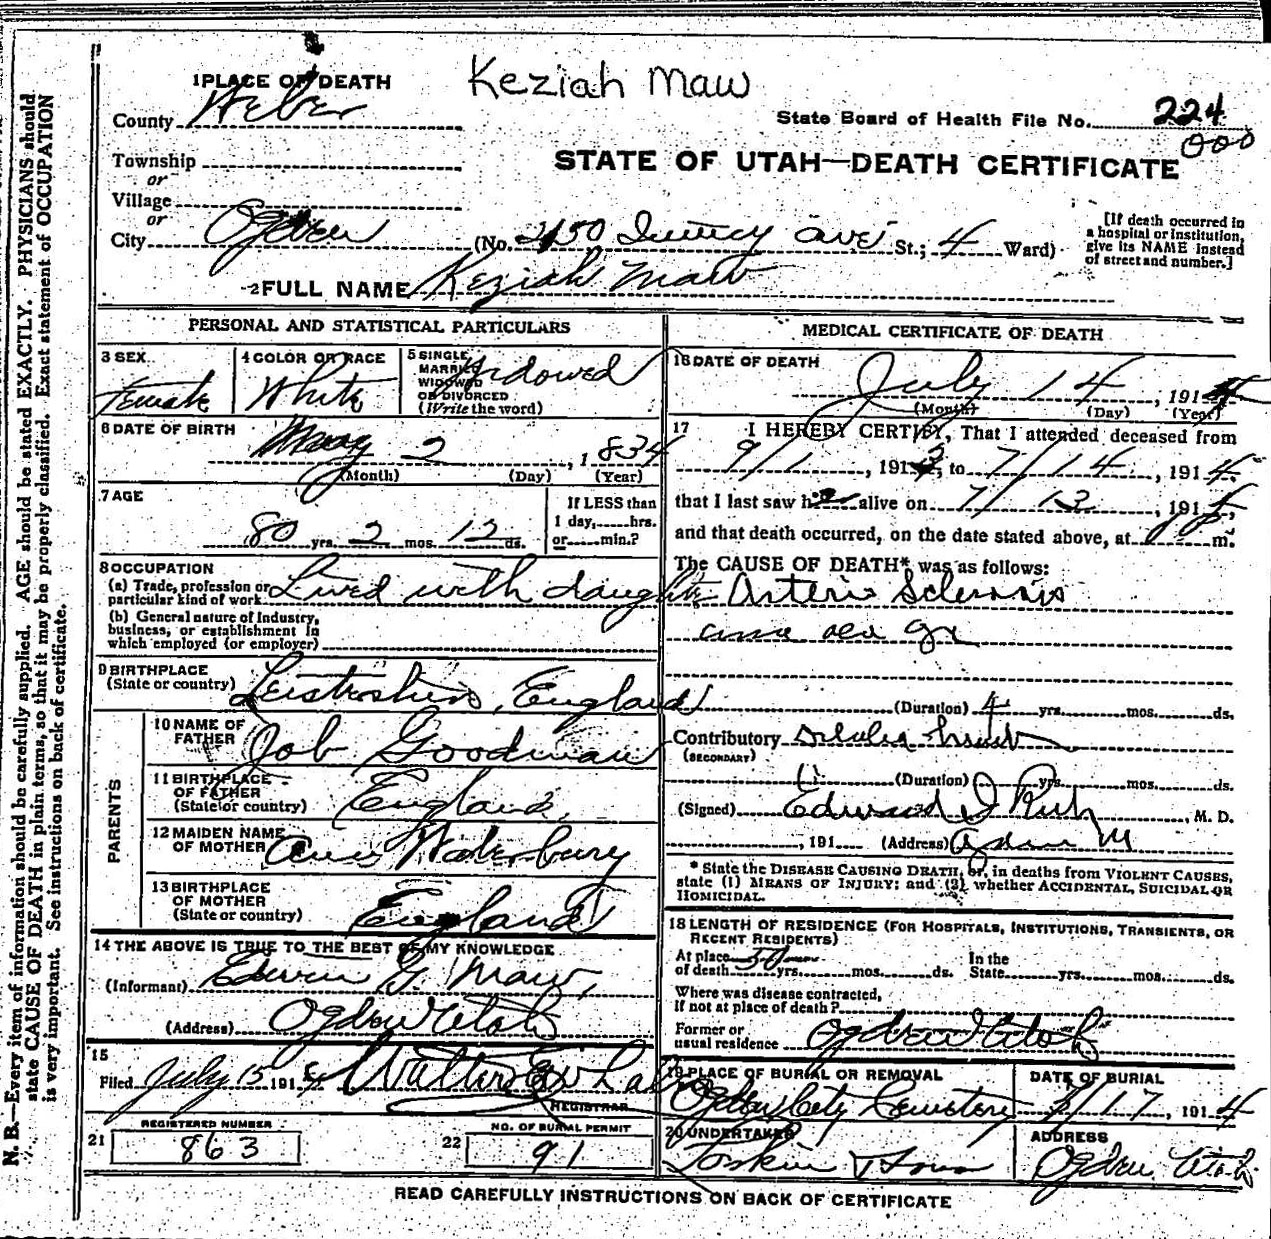 Keziah Maw
1 PLACE OF DEATH
County Weber
State Board of Health File No. 224
000
Township
or
Village
or
City Ogden (No. 2150 Quincy ave St.; 4 Ward)
STATE OF UTAH—DEATH CERTIFICATE
[If death occurred in
a hospital or institution,
give its NAME instead
of street and number.]
2 FULL NAME Keziah Maw
PERSONAL AND STATISTICAL PARTICULARS
3 SEX Female
4 COLOR OR RACE White
5 SINGLE
MARRIED
WIDOWED
OR DIVORCED
(Write the word) Widowed
6 DATE OF BIRTH
May 2, 1834
(Month) (Day) (Year)
7 AGE
80 yrs. 2 mos. 12 ds.
If LESS than
1 day,......hrs.
or......min.?
8 OCCUPATION
(a) Trade, profession or
particular kind of work Lived with daughter
(b) General nature of Industry,
business, or establishment in
which employed (or employer)
9 BIRTHPLACE
(State or country) England
PARENTS
10 NAME OF
FATHER Job Goodman
11 BIRTHPLACE
OF FATHER
(State or country) England
12 MAIDEN NAME
OF MOTHER Waterbury
13 BIRTHPLACE
OF MOTHER
(State or country) England
14 THE ABOVE IS TRUE TO THE BEST OF MY KNOWLEDGE
(Informant) Edwin G. Maw,
(Address) Ogden Utah
15
Filed July 15 1914
REGISTRAR
REGISTERED NUMBER
21 863
NO. OF BURIAL PERMIT
22 91
MEDICAL CERTIFICATE OF DEATH
16 DATE OF DEATH
July 14, 1914
(Month) (Day) (Year)
17 I HEREBY CERTIFY, That I attended deceased from
9/1, 1913, to 7/14, 1914.
that I last saw her alive on 7/13, 191
and that death occurred, on the date stated above, at m.
The CAUSE OF DEATH* was as follows:
Arterio Sclerosis
(Duration) 4 yrs. mos. ds.
Contributory
(SECONDARY)
(Duration) yrs. mos. ds.
(Signed) Edward I Rich, M. D.
, 191 (Address) Ogden
* State the DISEASE CAUSING DEATH, or, in deaths from VIOLENT CAUSES,
state (1) MEANS OF INJURY; and (2) whether ACCIDENTAL, SUICIDAL OR
HOMICIDAL.
18 LENGTH OF RESIDENCE (FOR HOSPITALS, INSTITUTIONS, TRANSIENTS, OR
RECENT RESIDENTS)
At place
of death yrs. mos. ds. In the
State yrs. mos. ds.
Where was disease contracted,
if not at place of death?
Former or
usual residence Ogden Utah
19 PLACE OF BURIAL OR REMOVAL
Ogden City Cemetery
DATE OF BURIAL
7/17, 1914
20 UNDERTAKER
ADDRESS
Ogden, Utah
READ CAREFULLY INSTRUCTIONS ON BACK OF CERTIFICATE
N. B.—Every item of information should be carefully supplied. AGE should be stated EXACTLY. PHYSICIANS should
state CAUSE OF DEATH in plain terms, so that it may be properly classified. Exact statement of OCCUPATION
is very important. See instructions on back of certificate.